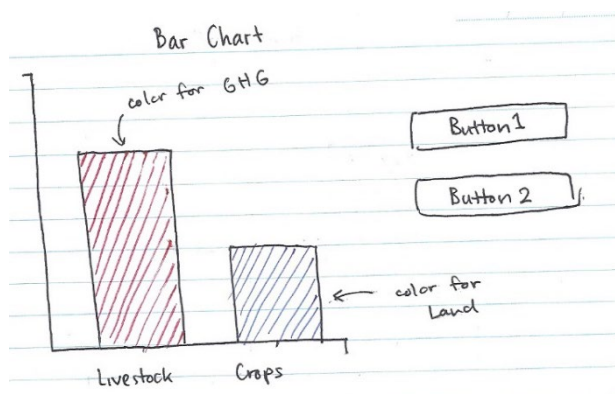 Bar Chart
color for GHG
Button 1
Button 2
color for
Land
Livestock
Crops